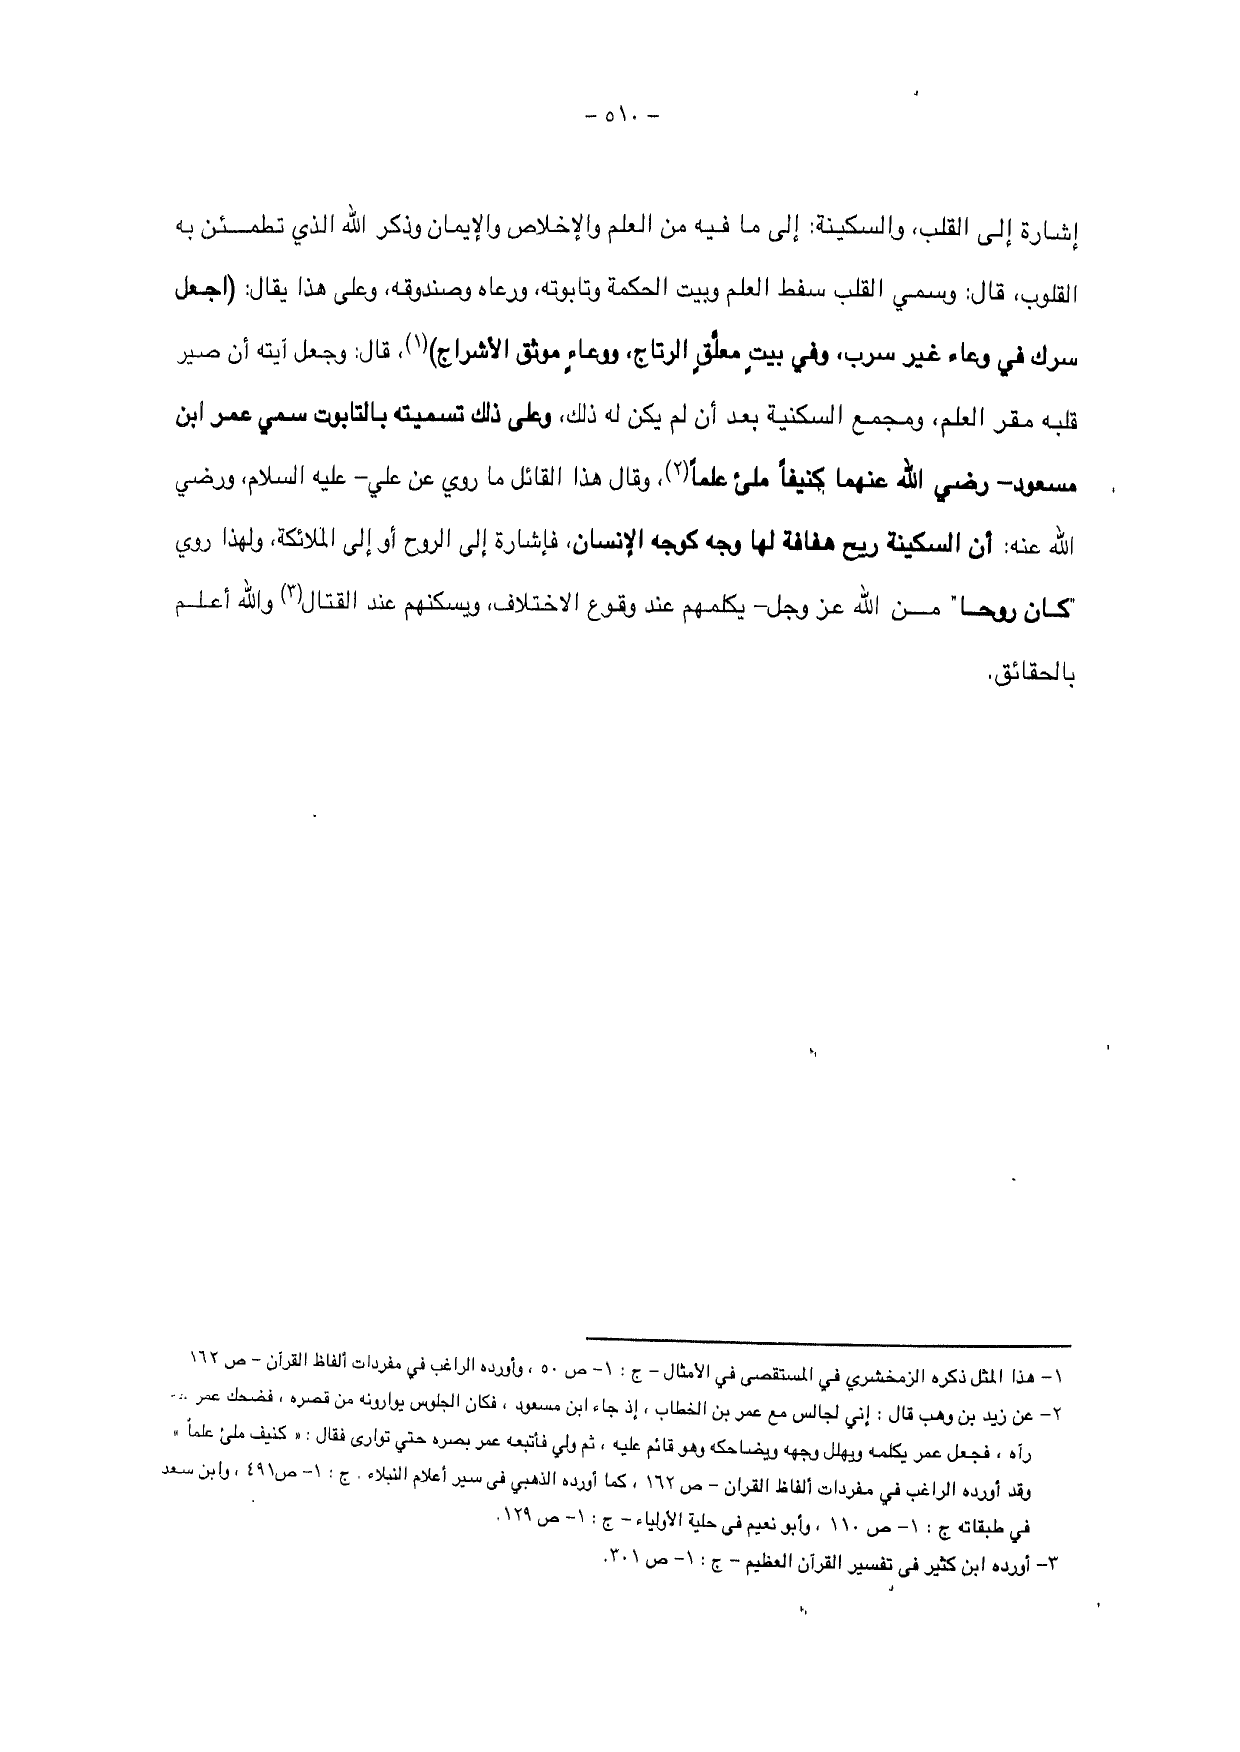 – ٥١٠ –
إشارة إلى القلب، والسكينة: إلى ما فيه من العلم والإخلاص والإيمان وذكر الله الذي تطمئن به
القلوب، قال: وسمي القلب سفط العلم وبيت الحكمة وتابوته، ورعاه وصندوقه، وعلى هذا يقال: (اجعل
سرك في وعاء غير سرب، وفي بيتٍ معلَّقٍ الرتاج، ووعاءٍ موثق الأشراج)(١)، قال: وجعل آيته أن صير
قلبه مقر العلم، ومجمع السكنية بعد أن لم يكن له ذلك، وعلى ذلك تسميته بالتابوت سمي عمر ابن
مسعود– رضي الله عنهما كنيفاً ملئ علماً(٢)، وقال هذا القائل ما روي عن علي– عليه السلام، ورضي
الله عنه: أن السكينة ريح هفافة لها وجه كوجه الإنسان، فإشارة إلى الروح أو إلى الملائكة، ولهذا روي
"كان روحا" من الله عز وجل– يكلمهم عند وقوع الاختلاف، ويسكنهم عند القتال(٣) والله أعلم
بالحقائق.
١– هذا المثل ذكره الزمخشري في المستقصى في الأمثال – ج : ١– ص ٥٠ ، وأورده الراغب في مفردات ألفاظ القرآن – ص ١٦٢
٢– عن زيد بن وهب قال : إني لجالس مع عمر بن الخطاب ، إذ جاء ابن مسعود ، فكان الجلوس يوارونه من قصره ، فضحك عمر
رآه ، فجعل عمر يكلمه ويهلل وجهه ويضاحكه وهو قائم عليه ، ثم ولي فأتبعه عمر بصره حتي توارى فقال : « كنيف ملئ علماً »
وقد أورده الراغب في مفردات ألفاظ القران – ص ١٦٢ ، كما أورده الذهبي فى سير أعلام النبلاء . ج : ١– ص٤٩١ ، وابن سعد
في طبقاته ج : ١– ص ١١٠ ، وأبو نعيم فى حلية الأولياء – ج : ١– ص ١٢٩.
٣– أورده ابن كثير فى تفسير القرآن العظيم – ج : ١– ص ٣٠١.